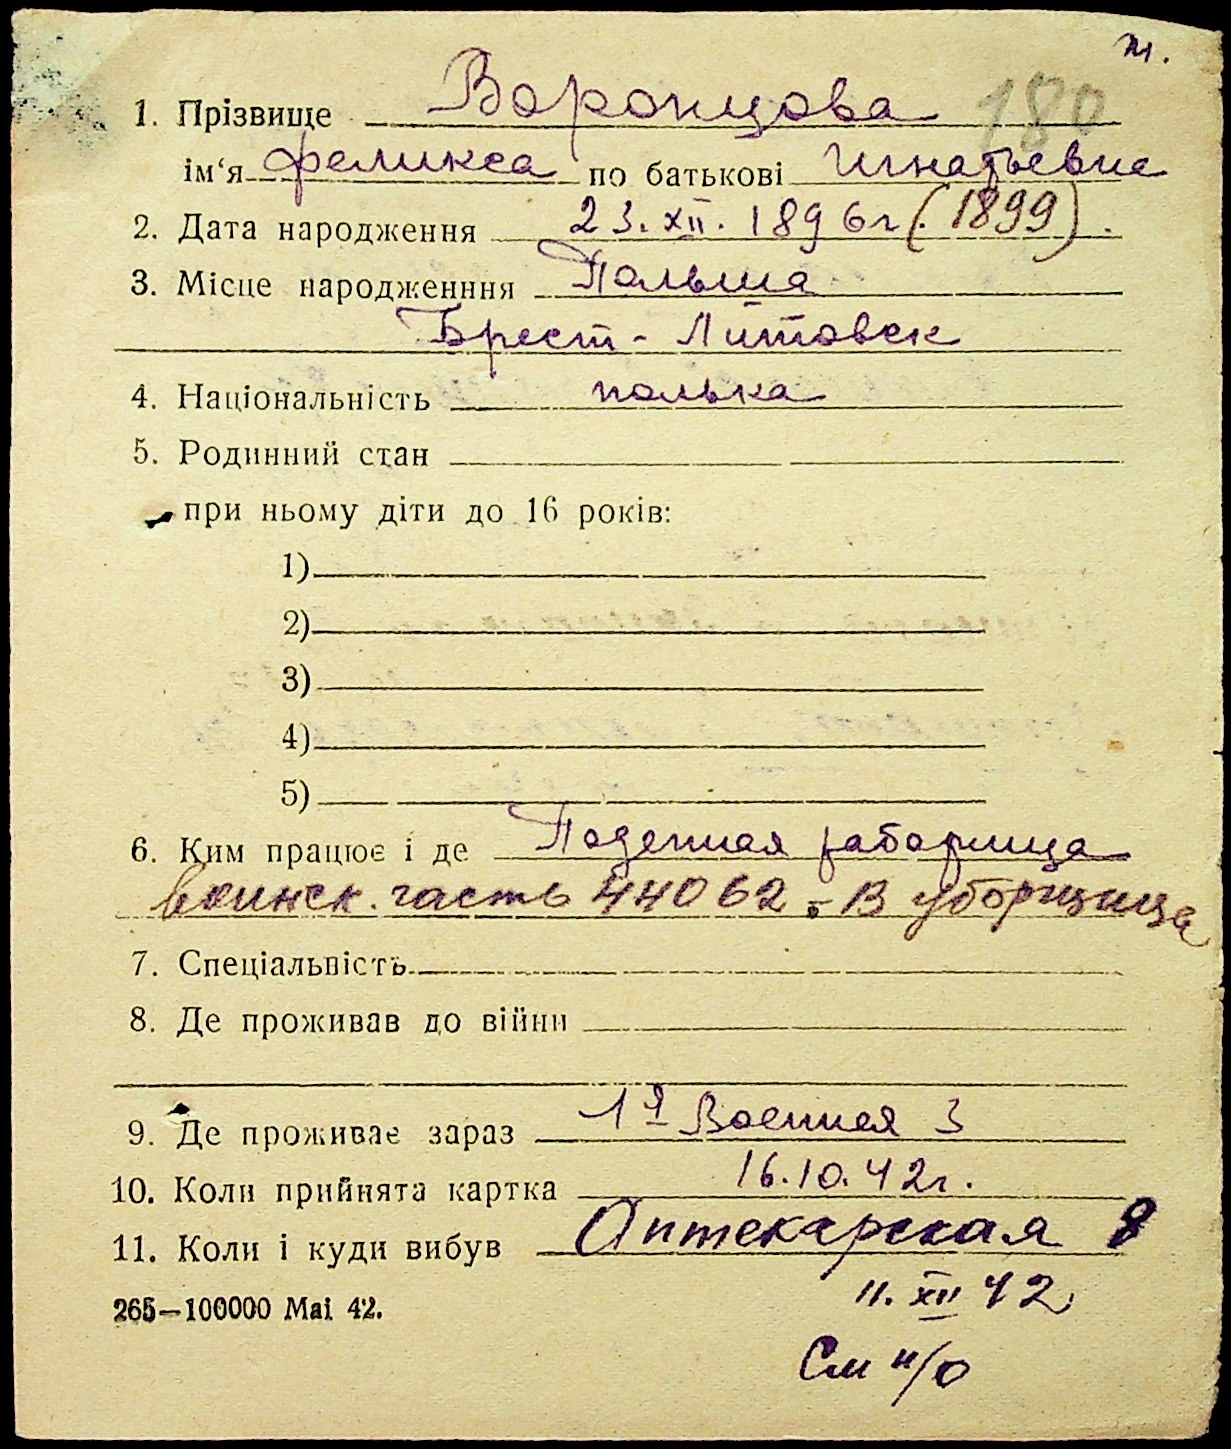 т.
180
1. Прізвище Воронцова
ім‘я Феликса по батькові Игнатьевна
2. Дата народження 23.XII.1896г. (1899).
3. Місце народженння Польша
Брест-Литовск
4. Національність полька
5. Родинний стан
при ньому діти до 16 років:
1)
2)
3)
4)
5)
6. Ким працює і де Поденная работница
воинск. часть 44062. - В уборщица
7. Спеціальність
8. Де проживав до війни
9. Де проживає зараз 1я Военная 3
10. Коли прийнята картка 16.10.42г.
11. Коли і куди вибув Аптекарская 8
11.XII 42
См н/о
265—100000 Маі 42.